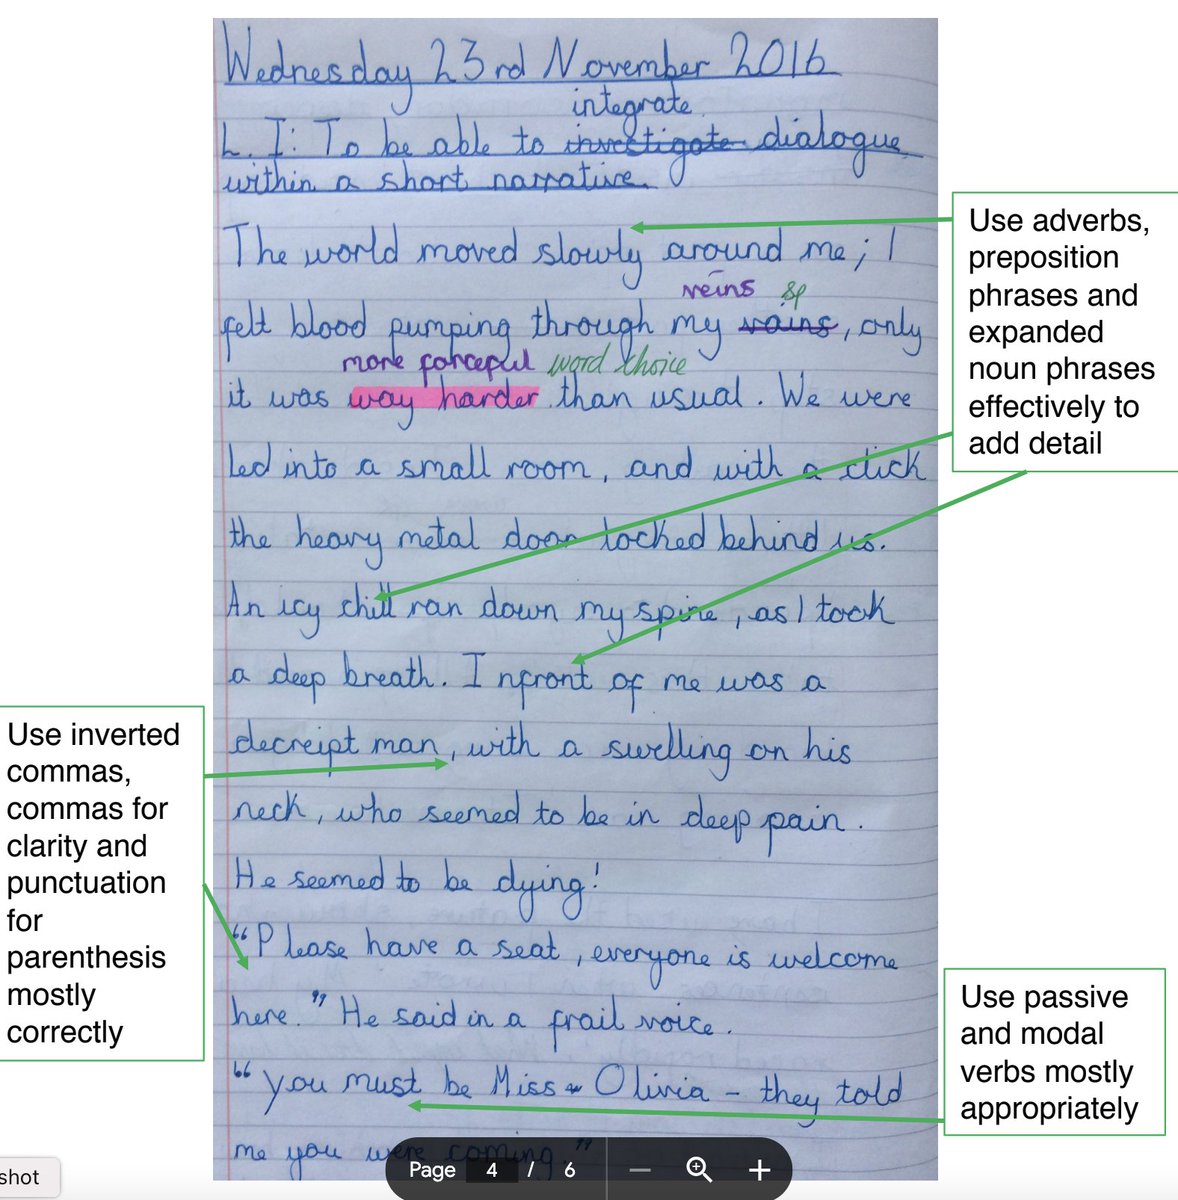 Wednesday 23rd November 2016
integrate
L.I: To be able to investigate dialogue
within a short narrative.
The world moved slowly around me; I
veins sp
felt blood pumping through my vains, only
more forceful word choice
it was way harder than usual. We were
led into a small room, and with a click
the heavy metal door locked behind us.
An icy chill ran down my spine, as I took
a deep breath. Infront of me was a
decreipt man, with a swelling on his
neck, who seemed to be in deep pain.
He seemed to be dying!
"Please have a seat, everyone is welcome
here." He said in a frail voice.
"you must be Miss Olivia - they told
me you were coming."
Use adverbs,
preposition
phrases and
expanded
noun phrases
effectively to
add detail
Use inverted
commas,
commas for
clarity and
punctuation
for
parenthesis
mostly
correctly
Use passive
and modal
verbs mostly
appropriately
Page 4 / 6
shot